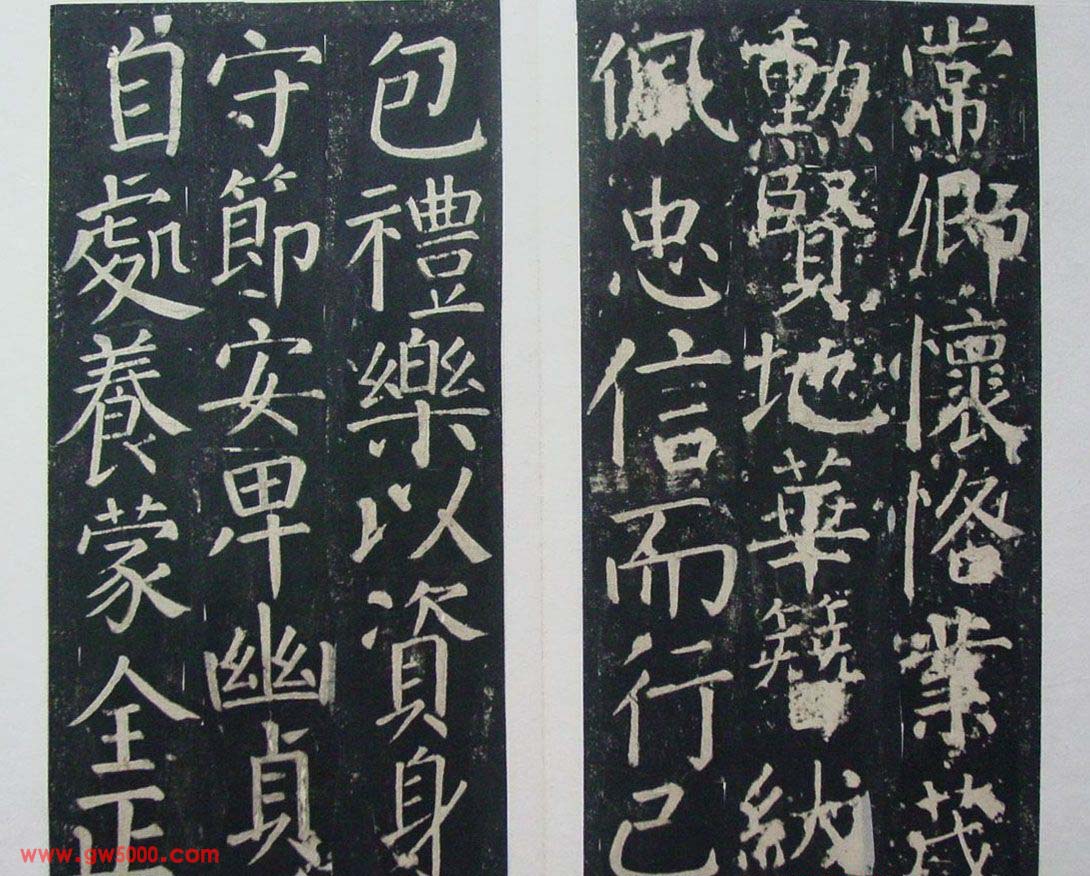 常卿懷恪業茂
勳賢地華簪紱
佩忠信而行己
包禮樂以資身
守節安卑幽貞
自處養蒙全正
www.gw5000.com